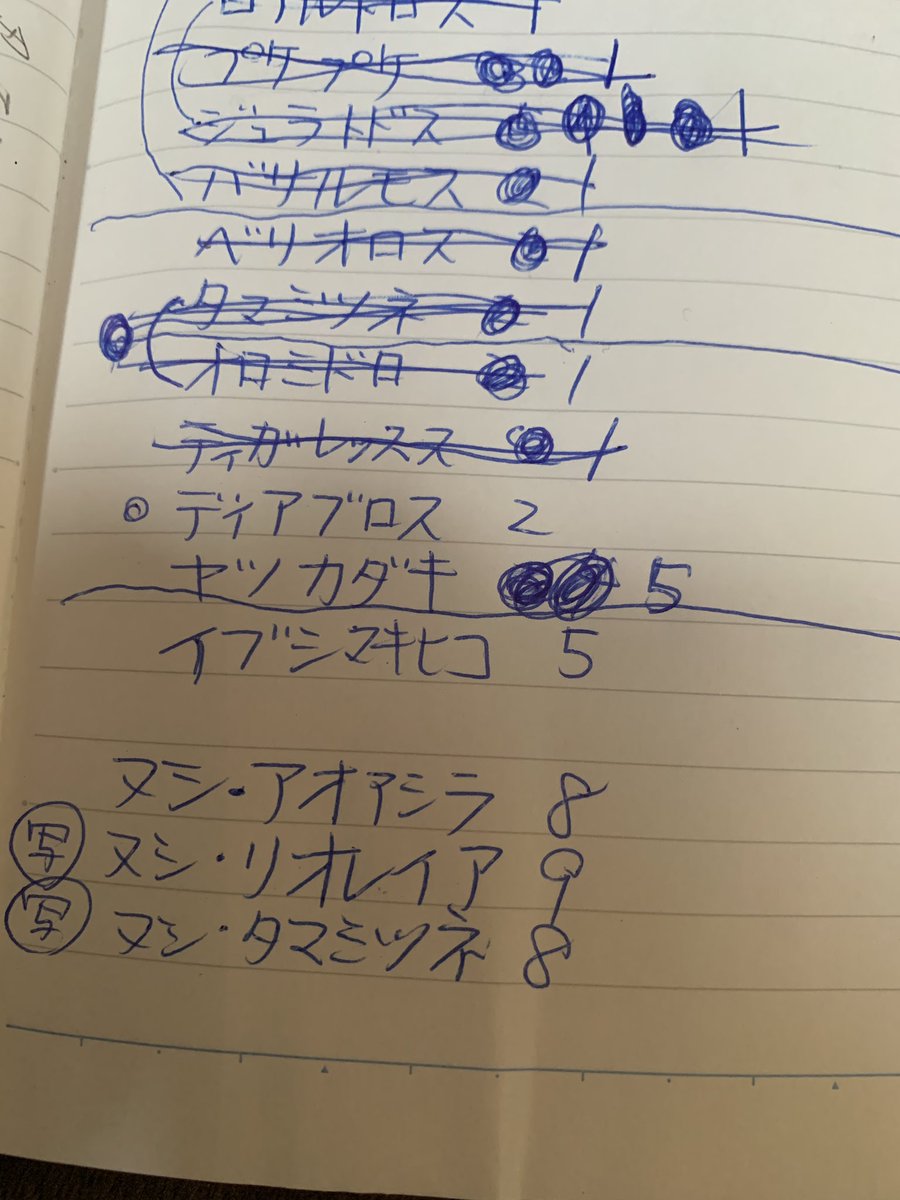 ロアルドロス 1
プケプケ 1
ジュラトドス 1
バサルモス 1
ベリオロス 1
タマミツネ 1
オロミドロ 1
ティガレックス 1
◎ ディアブロス 2
ヤツカダキ 5
イブシマキヒコ 5
ヌシ・アオアシラ 8
写 ヌシ・リオレイア 9
写 ヌシ・タマミツネ 8